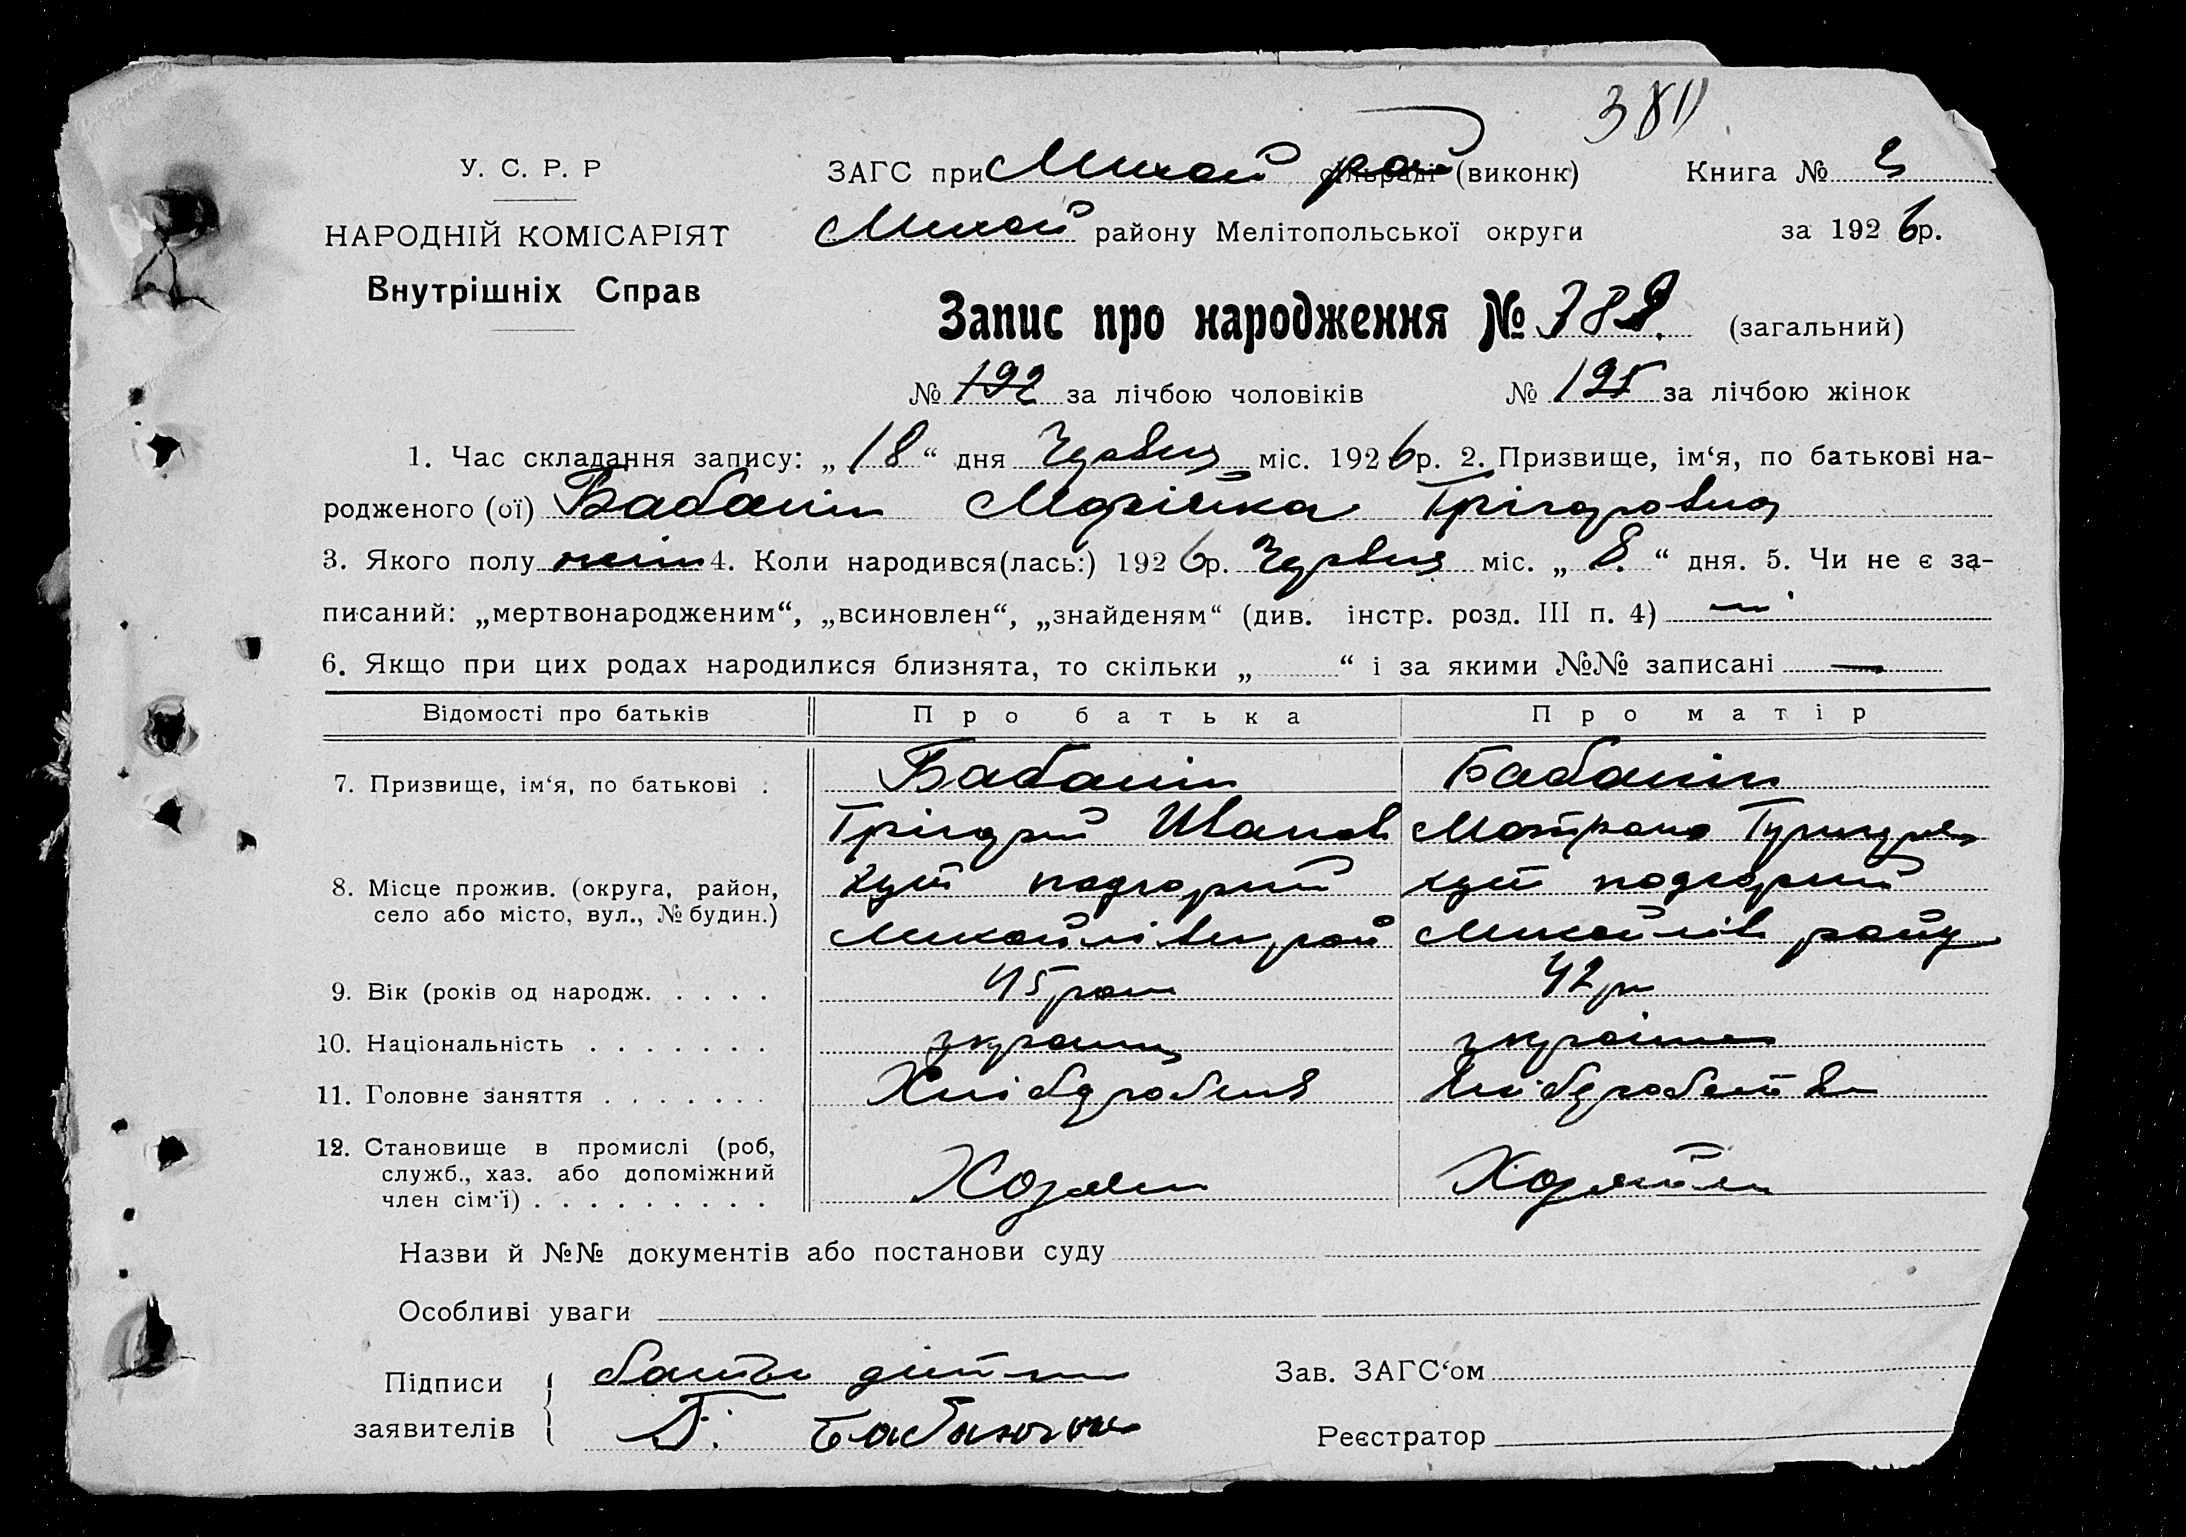 380
У. С. Р. Р
ЗАГС при Михай рай сільраді (виконк)
Книга №
НАРОДНІЙ КОМІСАРІЯТ
Михай району Мелітопольської округи
за 1926 р.
Внутрішніх Справ
Запис про народження № 388. (загальний)
№ 192 за лічбою чоловіків № 195 за лічбою жінок
1. Час складання запису: „18“ дня Червця міс. 1926 р. 2. Призвище, ім‘я, по батькові на-
родженого (ої) Бабанін Марійка Грігоровна
3. Якого полу жін 4. Коли народився(лась:) 1926 р. Червця міс. „8.“ дня. 5. Чи не є за-
писаний: „мертвонародженим“, „всиновлен“, „знайденям“ (див. інстр. розд. III п. 4) —
6. Якщо при цих родах народилися близнята, то скільки „ “ і за якими №№ записані —
Відомості про батьків Про батька Про матір
7. Призвище, ім‘я, по батькові . Бабанін Бабанін
Грігорій Иванов Мотрона
8. Місце прожив. (округа, район, хут подгорний хут подгорний
село або місто, вул., № будин.) Михайлівск рай Михайлів райу
9. Вік (років од народж. . . . . 45 рок 42 р
10. Національність . . . . . . . украинц украінка
11. Головне заняття . . . . . . . Хлібороб
12. Становище в промислі (роб, служб., хаз. або допоміжний член сім‘ї) . . . . . . . . . Хозяин Хозяйка
Назви й №№ документів або постанови суду
Особливі уваги
Підписи заявителів батько дитини
Зав. ЗАГС‘ом
Г. Бабанін
Реєстратор